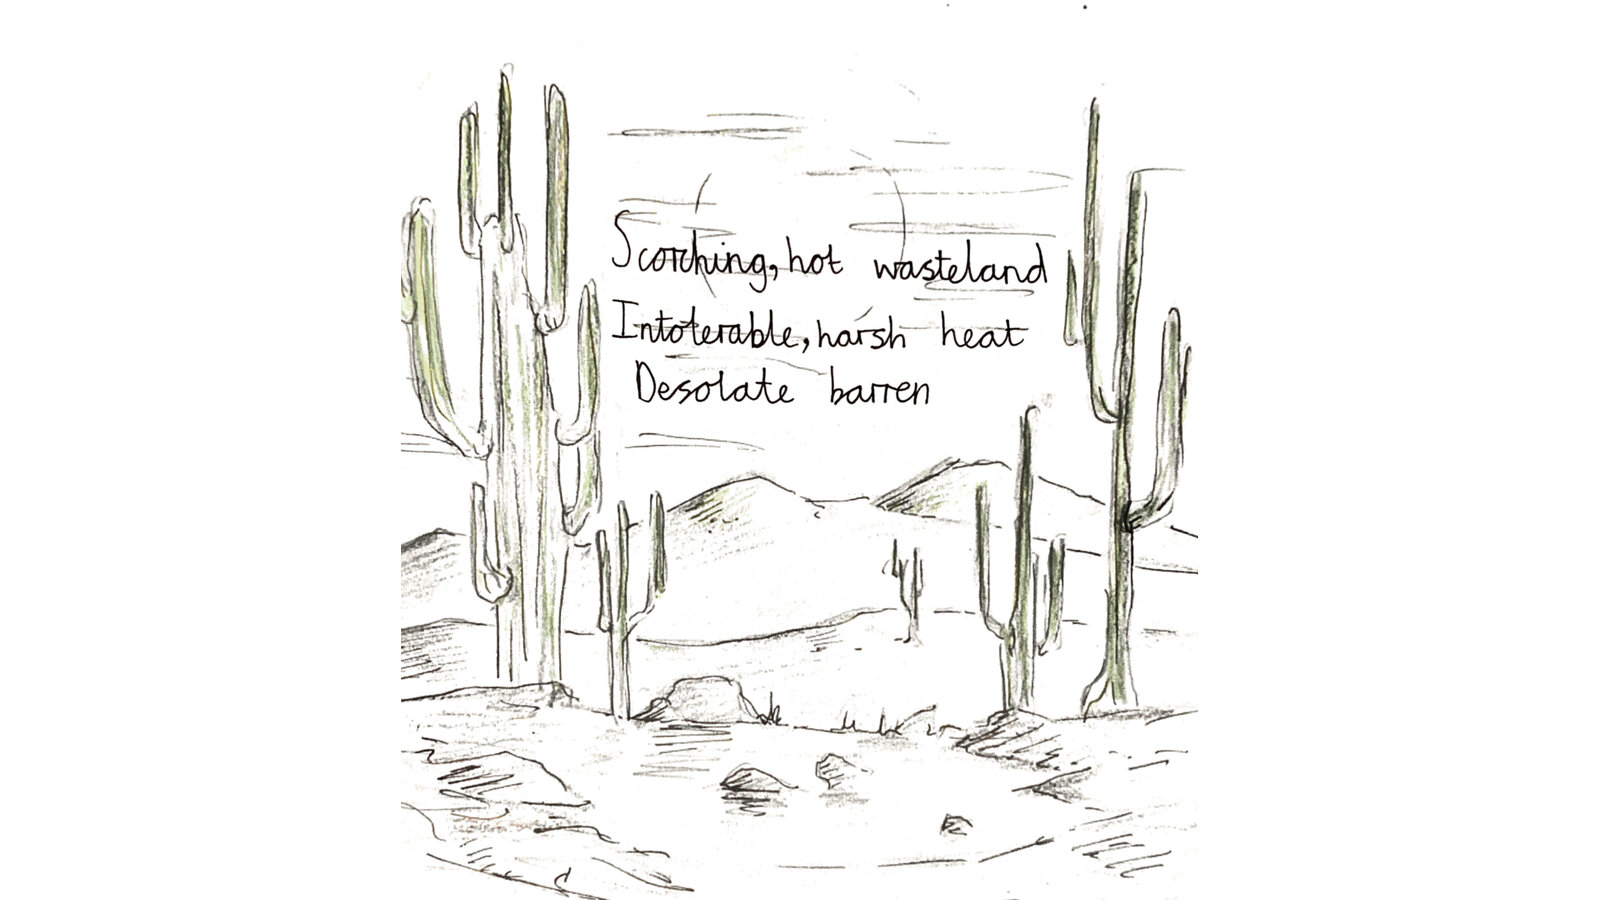 Scorching, hot wasteland
Intolerable, harsh heat
Desolate barren